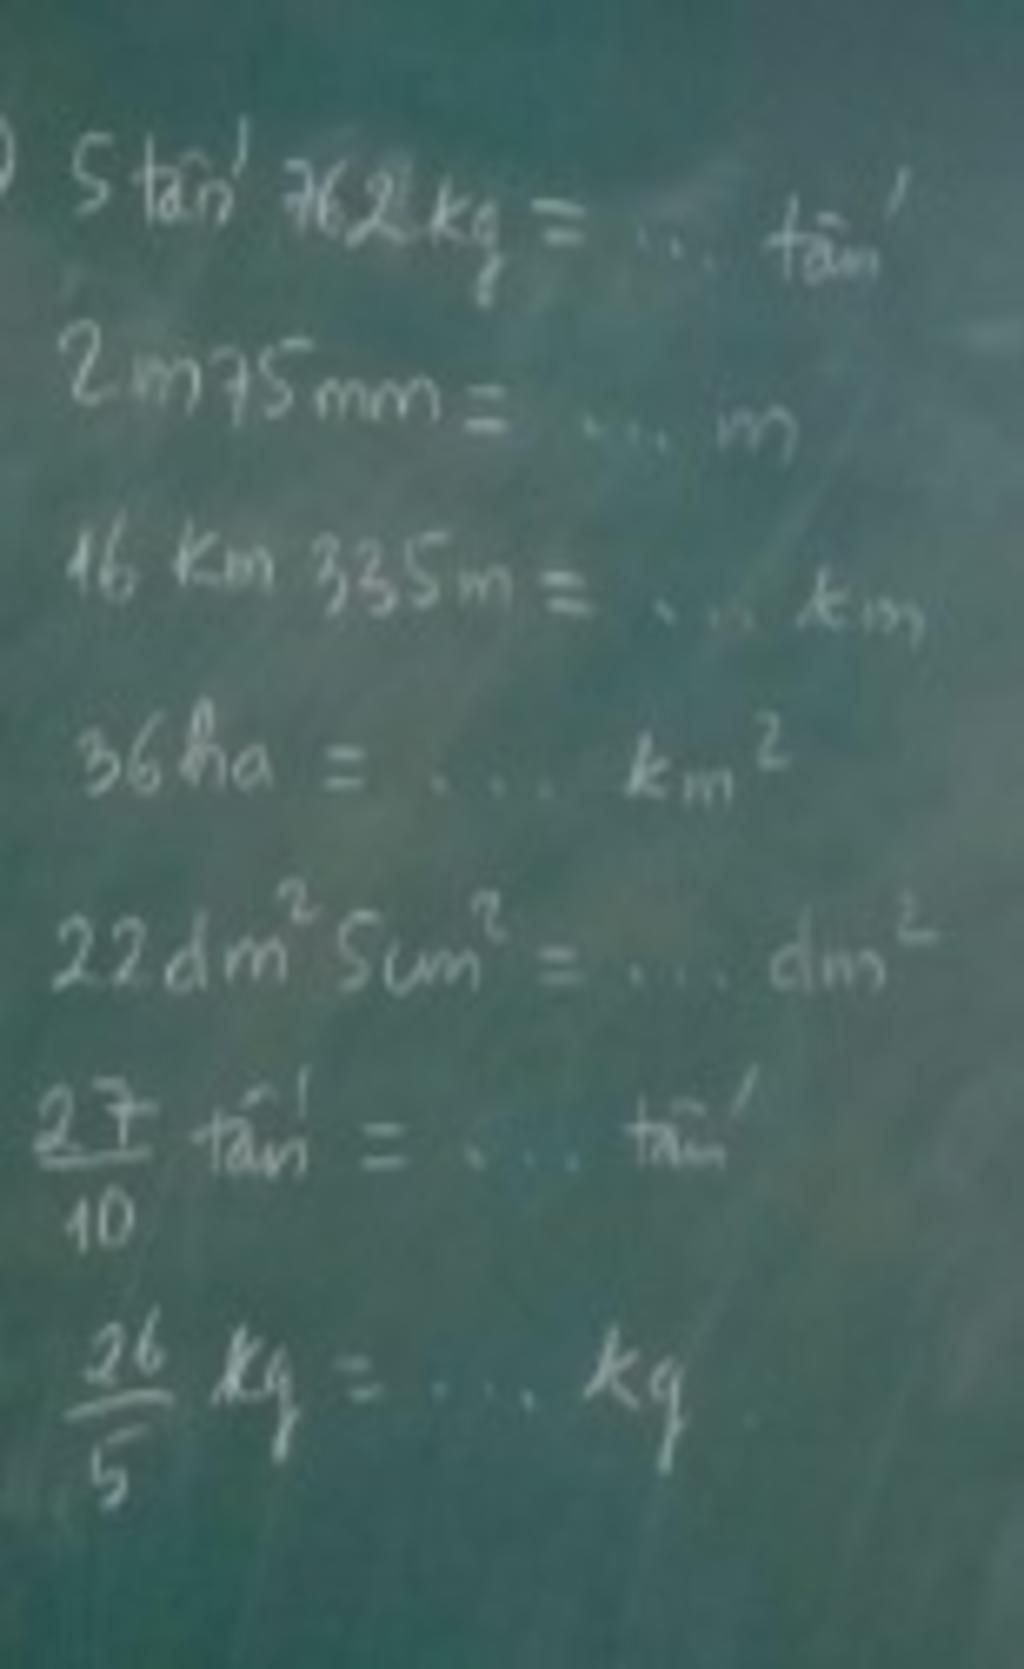 ) 5 tấn 762kg = ... tấn
2m75mm = ... m
16 km 335m = ... km
36ha = ... km²
22dm² 5cm² = ... dm²
27/10 tấn = ... tấn
26/5 kg = ... kg